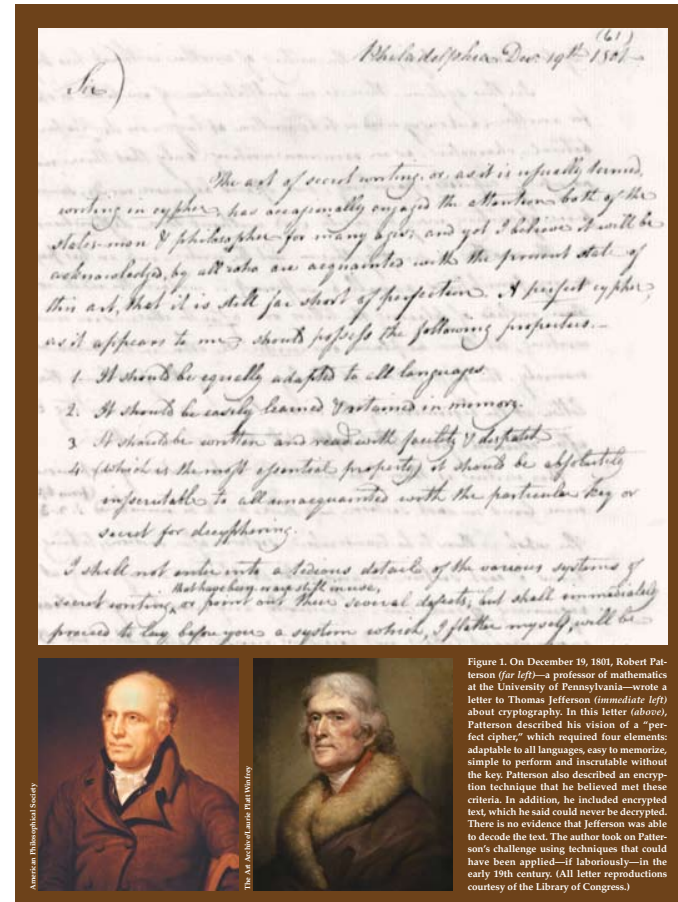 (61)
Philadelphia Dec. 19th 1801
Sir)
The art of secret writing, or, as it is usually termed,
writing in cypher, has occasionally engaged the attention both of the
states-man & philosopher for many ages; and yet I believe it will be
acknowledged, by all who are acquainted with the present state of
this art, that it is still far short of perfection. A perfect cypher,
as it appears to me, should possess the following properties.—
1. It should be equally adapted to all languages.
2. It should be easily learned & retained in memory.
3. It should be written and read with facility & dispatch.
4. (which is the most essential property) it should be absolutely
inscrutable to all unacquainted with the particular key or
secret for decyphering.
I shall not enter into a tedious detail of the various systems of
that have been, or are still in use,
secret writing, or point out their several defects; but shall immediately
proceed to lay before you a system which, I flatter myself, will be
American Philosophical Society
The Art Archive/Laurie Platt Winfrey
Figure 1. On December 19, 1801, Robert Pat-
terson (far left)—a professor of mathematics
at the University of Pennsylvania—wrote a
letter to Thomas Jefferson (immediate left)
about cryptography. In this letter (above),
Patterson described his vision of a “per-
fect cipher,” which required four elements:
adaptable to all languages, easy to memorize,
simple to perform and inscrutable without
the key. Patterson also described an encryp-
tion technique that he believed met these
criteria. In addition, he included encrypted
text, which he said could never be decrypted.
There is no evidence that Jefferson was able
to decode the text. The author took on Patter-
son’s challenge using techniques that could
have been applied—if laboriously—in the
early 19th century. (All letter reproductions
courtesy of the Library of Congress.)